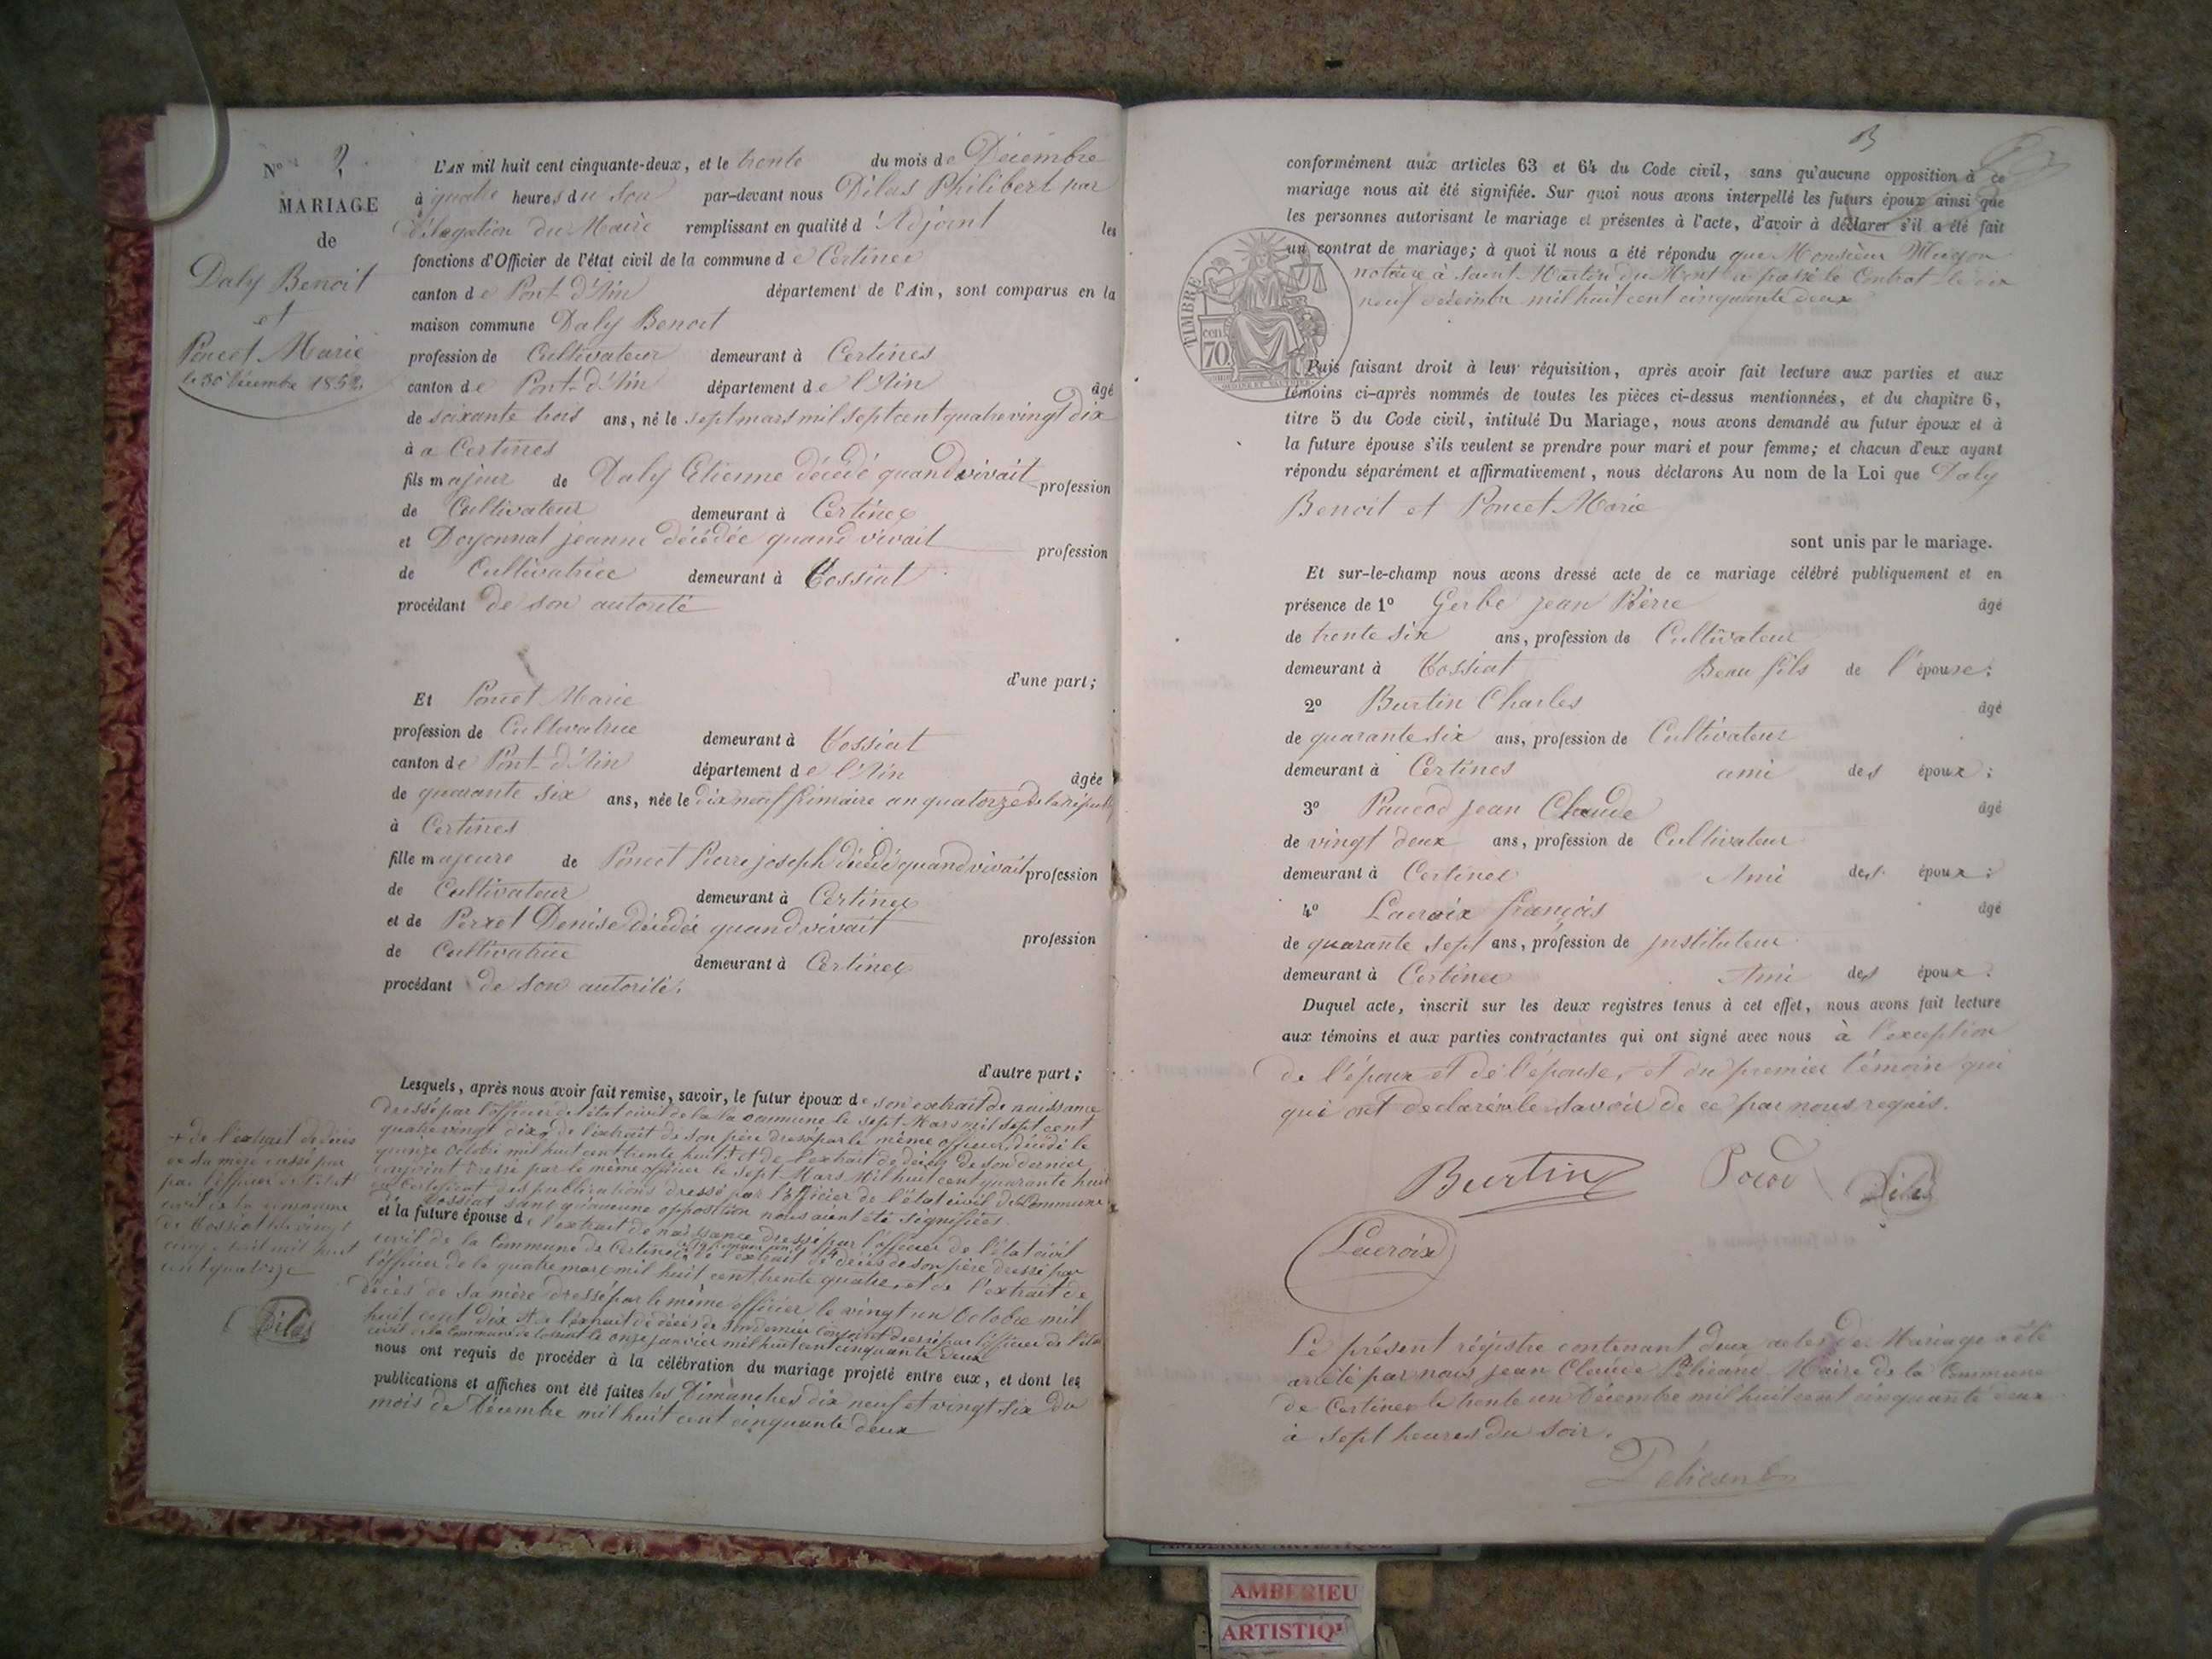 N° 2
MARIAGE
de
Daly Benoit
et
Poncet Marie
le 30 Décembre 1852.
L'AN mil huit cent cinquante-deux, et le trente du mois de Décembre
à quatre heures du soir par-devant nous Dilas Philibert par
délegation du Maire remplissant en qualité d'Adjoint les
fonctions d'Officier de l'état civil de la commune de Certines
canton de Pont-d'Ain département de l'Ain, sont comparus en la
maison commune Daly Benoit
profession de Cultivateur demeurant à Certines
canton de Pont-d'Ain département de l'Ain âgé
de soixante trois ans, né le sept mars mil sept cent quatre vingt dix
à a Certines
fils majeur de Daly Etienne décédé quand vivait profession
de Cultivateur demeurant à Certines
et Doyonnat jeanne décédée quand vivait profession
de Cultivatrice demeurant à Tossiat
procédant de son autorité
d'une part;
Et Poncet Marie
profession de Cultivatrice demeurant à Tossiat
canton de Pont-d'Ain département de l'Ain âgée
de quarante six ans, née le dix neuf frimaire an quatorze de la républ
à Certines
fille majeure de Poncet Pierre joseph décédé quand vivait profession
de Cultivateur demeurant à Certines
et de Perret Denise décédée quand vivait profession
de Cultivatrice demeurant à Certines
procédant de son autorité.
d'autre part;
Lesquels, après nous avoir fait remise, savoir, le futur époux de son extrait de naissance
dressé par l'officier de l'état civil de la la commune le sept Mars mil sept cent
quatre vingt dix, de l'extrait de son père dressé par le même officier, décédé le
quinze octobre mil huit cent trente huit + et de l'extrait de décès de son dernier
conjoint dressé par le même officier le sept Mars Mil huit cent quarante huit
du certificat des publications dressé par l'officier de l'état civil de la Commune
de Tossiat sans qu'aucune opposition nous aient été signifiées.
et la future épouse de l'extrait de naissance dressé par l'officier de l'état civil
civil de la Commune de Certines le 19 frimaire an 14 de l'extrait de décès de son père dressé par
l'officier de la quatre mars mil huit cent trente quatre, et de l'extrait de
décès de sa mère dressé par le même officier le vingt un Octobre mil
huit cent dix et de l'extrait de décès de son dernier Conjoint dressé par l'officier de l'état
civil de la Commune de Tossiat le onze janvier mil huit cent cinquante deux
nous ont requis de procéder à la célébration du mariage projeté entre eux, et dont les
publications et affiches ont été faites les Dimanches dix neuf et vingt six du
mois de Décembre mil huit cent cinquante deux
+ de l'extrait de décès
de sa mère dressé par
par l'officier de l'état
civil de la commune
de Tossiat le vingt
cinq août mil huit
cent quatorze
Dilas
conformément aux articles 63 et 64 du Code civil, sans qu'aucune opposition à ce
mariage nous ait été signifiée. Sur quoi nous avons interpellé les futurs époux ainsi que
les personnes autorisant le mariage et présentes à l'acte, d'avoir à déclarer s'il a été fait
un contrat de mariage; à quoi il nous a été répondu que Monsieur
notaire à Saint-Martin du Mont a passé le Contrat le dix
neuf décembre mil huit cent cinquante deux
TIMBRE
cen.
70
Puis faisant droit à leur réquisition, après avoir fait lecture aux parties et aux
témoins ci-après nommés de toutes les pièces ci-dessus mentionnées, et du chapitre 6,
titre 5 du Code civil, intitulé Du Mariage, nous avons demandé au futur époux et à
la future épouse s'ils veulent se prendre pour mari et pour femme; et chacun d'eux ayant
répondu séparément et affirmativement, nous déclarons Au nom de la Loi que Daly
Benoit et Poncet Marie
sont unis par le mariage.
Et sur-le-champ nous avons dressé acte de ce mariage célébré publiquement et en
présence de 1° Gerbe jean Pierre âgé
de trente six ans, profession de Cultivateur
demeurant à Tossiat Beau fils de l'épouse;
2° Burtin Charles âgé
de quarante six ans, profession de Cultivateur
demeurant à Certines ami des époux;
3° Paucod jean Claude âgé
de vingt deux ans, profession de Cultivateur
demeurant à Certines Ami des époux;
4° Lacroix françois âgé
de quarante sept ans, profession de jnstituteur
demeurant à Certines Ami des époux.
Duquel acte, inscrit sur les deux registres tenus à cet effet, nous avons fait lecture
aux témoins et aux parties contractantes qui ont signé avec nous à l'exception
de l'époux et de l'épouse, et du premier témoin qui
qui ont declaré ne le savoir de ce par nous requis.
Burtin Pocod Dilas
Lacroix
Le présent régistre contenant deux actes de Mariage a été
arrêté par nous jean Claude Pélicand Maire de la Commune
de Certines le trente un Décembre mil huit cent cinquante deux
à sept heures du soir.
Pelicand
AMBERIEU ARTISTIQUE
AMBERIEU
ARTISTIQ